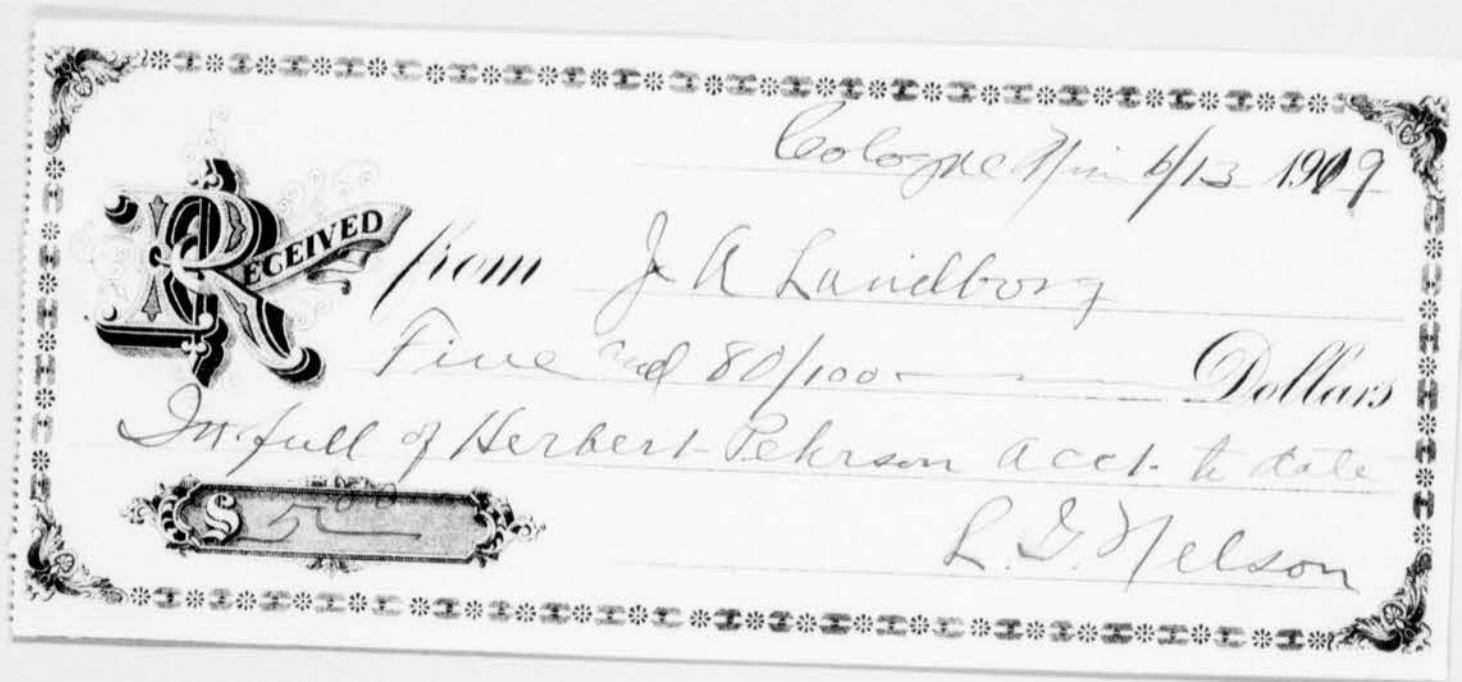 Cologne Min 6/13 1919
RECEIVED from J A Lundborg
Five and 80/100 Dollars
In full of Herbert Pehrson acct. to date
$ 5 80
L. G. Nelson